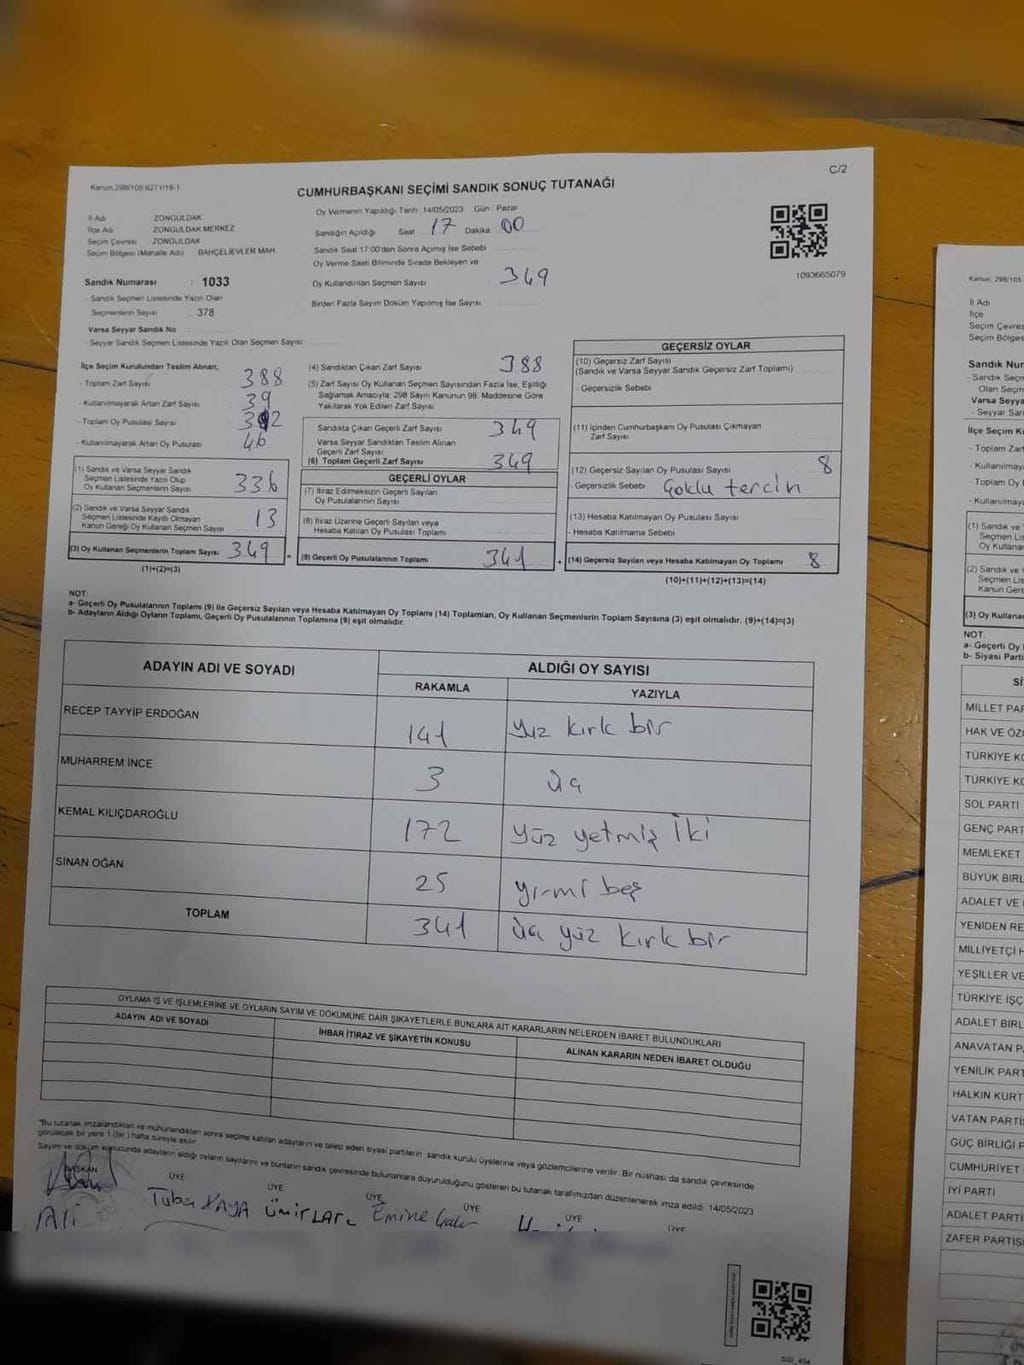 C/2
Kanun:298/105:6271/18-1
CUMHURBAŞKANI SEÇİMİ SANDIK SONUÇ TUTANAĞI
İl Adı ZONGULDAK
İlçe Adı ZONGULDAK MERKEZ
Seçim Çevresi ZONGULDAK
Seçim Bölgesi (Mahalle Adı) BAHÇELİEVLER MAH.
Oy Vermenin Yapıldığı Tarih :14/05/2023 Gün : Pazar
Sandığın Açıldığı Saat 17 Dakika 00
Sandık Saat 17:00'den Sonra Açılmış İse Sebebi
Oy Verme Saati Bitiminde Sırada Bekleyen ve
Oy Kullandırılan Seçmen Sayısı 349
Birden Fazla Sayım Döküm Yapılmış İse Sayısı
1093665079
Sandık Numarası : 1033
- Sandık Seçmen Listesinde Yazılı Olan
Seçmenlerin Sayısı : 378
Varsa Seyyar Sandık No :
- Seyyar Sandık Seçmen Listesinde Yazılı Olan Seçmen Sayısı:
İlçe Seçim Kurulundan Teslim Alınan;
- Toplam Zarf Sayısı 388
- Kullanılmayarak Artan Zarf Sayısı 39
- Toplam Oy Pusulası Sayısı
- Kullanılmayarak Artan Oy Pusulası 46
(1) Sandık ve Varsa Seyyar Sandık
Seçmen Listesinde Yazılı Olup
Oy Kullanan Seçmenlerin Sayısı 336
(2) Sandık ve Varsa Seyyar Sandık
Seçmen Listesinde Kayıtlı Olmayan
Kanun Gereği Oy Kullanan Seçmen Sayısı 13
(3) Oy Kullanan Seçmenlerin Toplam Sayısı 349 =
(1)+(2)=(3)
(4) Sandıktan Çıkan Zarf Sayısı 388
(5) Zarf Sayısı Oy Kullanan Seçmen Sayısından Fazla İse, Eşitliği
Sağlamak Amacıyla; 298 Sayılı Kanunun 98. Maddesine Göre
Yakılarak Yok Edilen Zarf Sayısı
Sandıkta Çıkan Geçerli Zarf Sayısı 349
Varsa Seyyar Sandıktan Teslim Alınan
Geçerli Zarf Sayısı
(6) Toplam Geçerli Zarf Sayısı 349
GEÇERLİ OYLAR
(7) İtiraz Edilmeksizin Geçerli Sayılan
Oy Pusulalarının Sayısı
(8) İtiraz Üzerine Geçerli Sayılan veya
Hesaba Katılan Oy Pusulası Toplamı
(9) Geçerli Oy Pusulalarının Toplamı 341 +
GEÇERSİZ OYLAR
(10) Geçersiz Zarf Sayısı
(Sandık ve Varsa Seyyar Sandık Geçersiz Zarf Toplamı)
- Geçersizlik Sebebi
(11) İçinden Cumhurbaşkanı Oy Pusulası Çıkmayan
Zarf Sayısı
(12) Geçersiz Sayılan Oy Pusulası Sayısı 8
- Geçersizlik Sebebi Çoklu tercin
(13) Hesaba Katılmayan Oy Pusulası Sayısı
- Hesaba Katılmama Sebebi
(14) Geçersiz Sayılan veya Hesaba Katılmayan Oy Toplamı 8
(10)+(11)+(12)+(13)=(14)
NOT:
a- Geçerli Oy Pusulalarının Toplamı (9) ile Geçersiz Sayılan veya Hesaba Katılmayan Oy Toplamı (14) Toplamları, Oy Kullanan Seçmenlerin Toplam Sayısına (3) eşit olmalıdır. (9)+(14)=(3)
b- Adayların Aldığı Oyların Toplamı, Geçerli Oy Pusulalarının Toplamına (9) eşit olmalıdır.
ADAYIN ADI VE SOYADI ALDIĞI OY SAYISI
RAKAMLA YAZIYLA
RECEP TAYYİP ERDOĞAN 141 yüz kırk bir
MUHARREM İNCE 3 üç
KEMAL KILIÇDAROĞLU 172 yüz yetmiş iki
SİNAN OĞAN 25 yirmi beş
TOPLAM 341 üç yüz kırk bir
OYLAMA İŞ VE İŞLEMLERİNE VE OYLARIN SAYIM VE DÖKÜMÜNE DAİR ŞİKAYETLERLE BUNLARA AİT KARARLARIN NELERDEN İBARET BULUNDUKLARI
ADAYIN ADI VE SOYADI İHBAR İTİRAZ VE ŞİKAYETİN KONUSU ALINAN KARARIN NEDEN İBARET OLDUĞU
*Bu tutanak imzalandıktan ve mühürlendikten sonra seçime katılan adayların ve talep eden siyasi partilerin sandık kurulu üyelerine veya gözlemcilerine verilir. Bir nushası da sandık çevresinde
görülecek bir yere 1 (bir) hafta süreyle asılır.
Sayım ve döküm sonucunda adayların aldığı oyların sayılarını ve bunların sandık çevresinde bulunanlara duyurulduğunu gösteren bu tutanak tarafımızdan düzenlenerek imza edildi. 14/05/2023
BAŞKAN ÜYE ÜYE ÜYE ÜYE ÜYE ÜYE
Ali Tuba KAYA Emine
Kanun: 298/105
İl Adı
İlçe
Seçim Çevres
Seçim Bölges
Sandık Nur
- Sandık Seçm
Olan Seçm
Varsa Seyya
- Seyyar San
İlçe Seçim K
- Toplam Zarf
- Kullanılmaya
- Toplam Oy
- Kullanılmaya
(1) Sandık ve
Seçmen Li
Oy Kullana
(2) Sandık ve
Seçmen Lis
Kanun Gere
(3) Oy Kullana
NOT
a- Geçerli Oy
b- Siyasi Parti
Sİ
MİLLET PAR
HAK VE ÖZG
TÜRKİYE KO
TÜRKİYE KO
SOL PARTİ
GENÇ PART
MEMLEKET
BÜYÜK BİRL
ADALET VE
YENİDEN RE
MİLLİYETÇİ H
YEŞİLLER VE
TÜRKİYE İŞÇ
ADALET BİRL
ANAVATAN P
YENİLİK PART
HALKIN KURT
VATAN PARTİS
GÜÇ BİRLİĞİ P
CUMHURİYET
İYİ PARTİ
ADALET PARTİ
ZAFER PARTİS